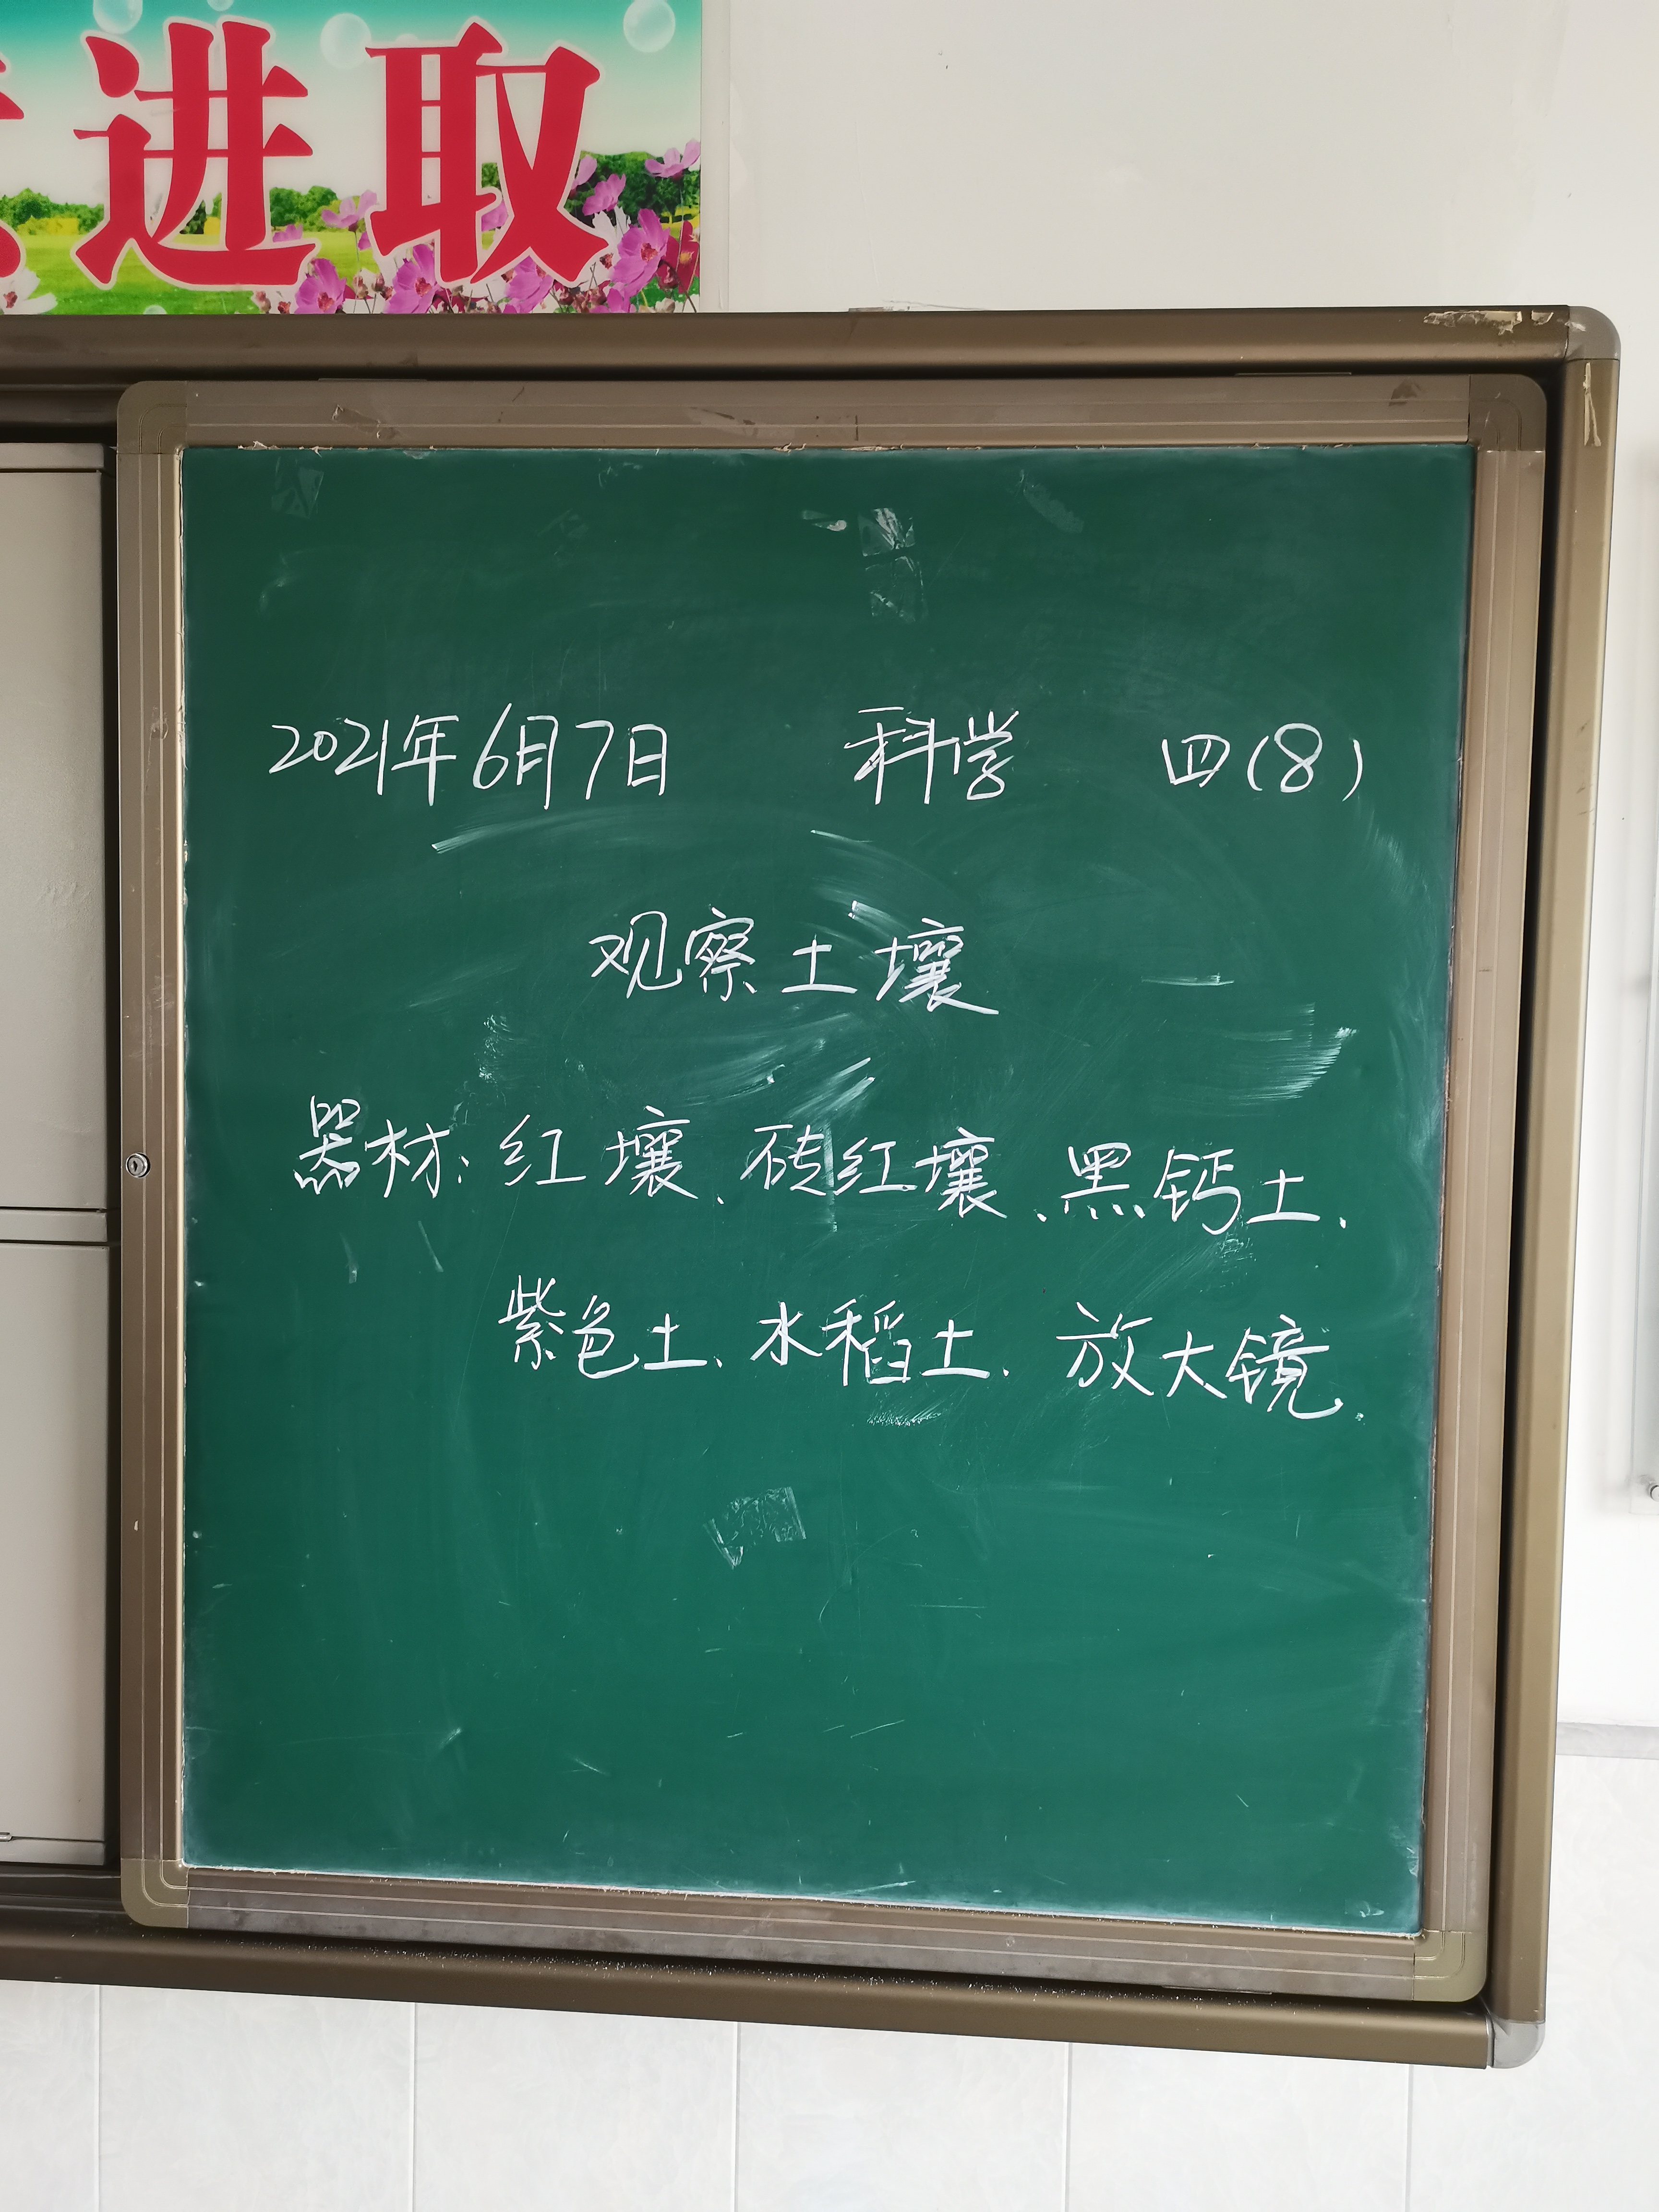 进取
2021年6月7日 科学 四(8)
观察土壤
器材:红壤、砖红壤、黑钙土、
紫色土、水稻土、放大镜.